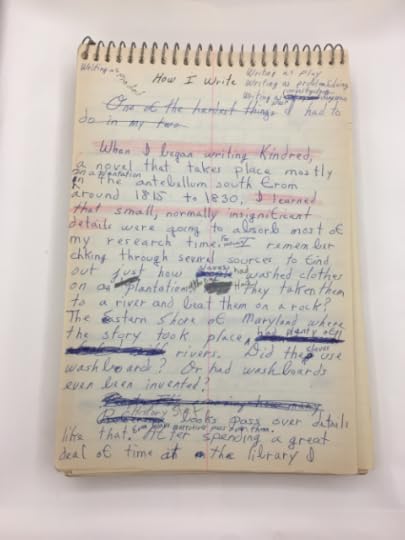 Writing as
How I Write
Writing as play
Writing as problem solving
Writing as
One of the hardest things I had to
do in my two
When I began writing Kindred,
a novel that takes place mostly
on a plantation
in the antebellum south from
around 1815 to 1830, I learned
that small, normally insignificant
details were going to absorb most of
my research time. I remember
through several sources to find
out just how slaves had washed clothes
on a plantation. Had they taken them
to a river and beat them on a rock?
The Eastern Shore of Maryland where
the story took place had plenty of
rivers. Did the slaves use
washboards? Or had washboards
even been invented?
History books pass over details
like that. After spending a great
deal of time at the library I